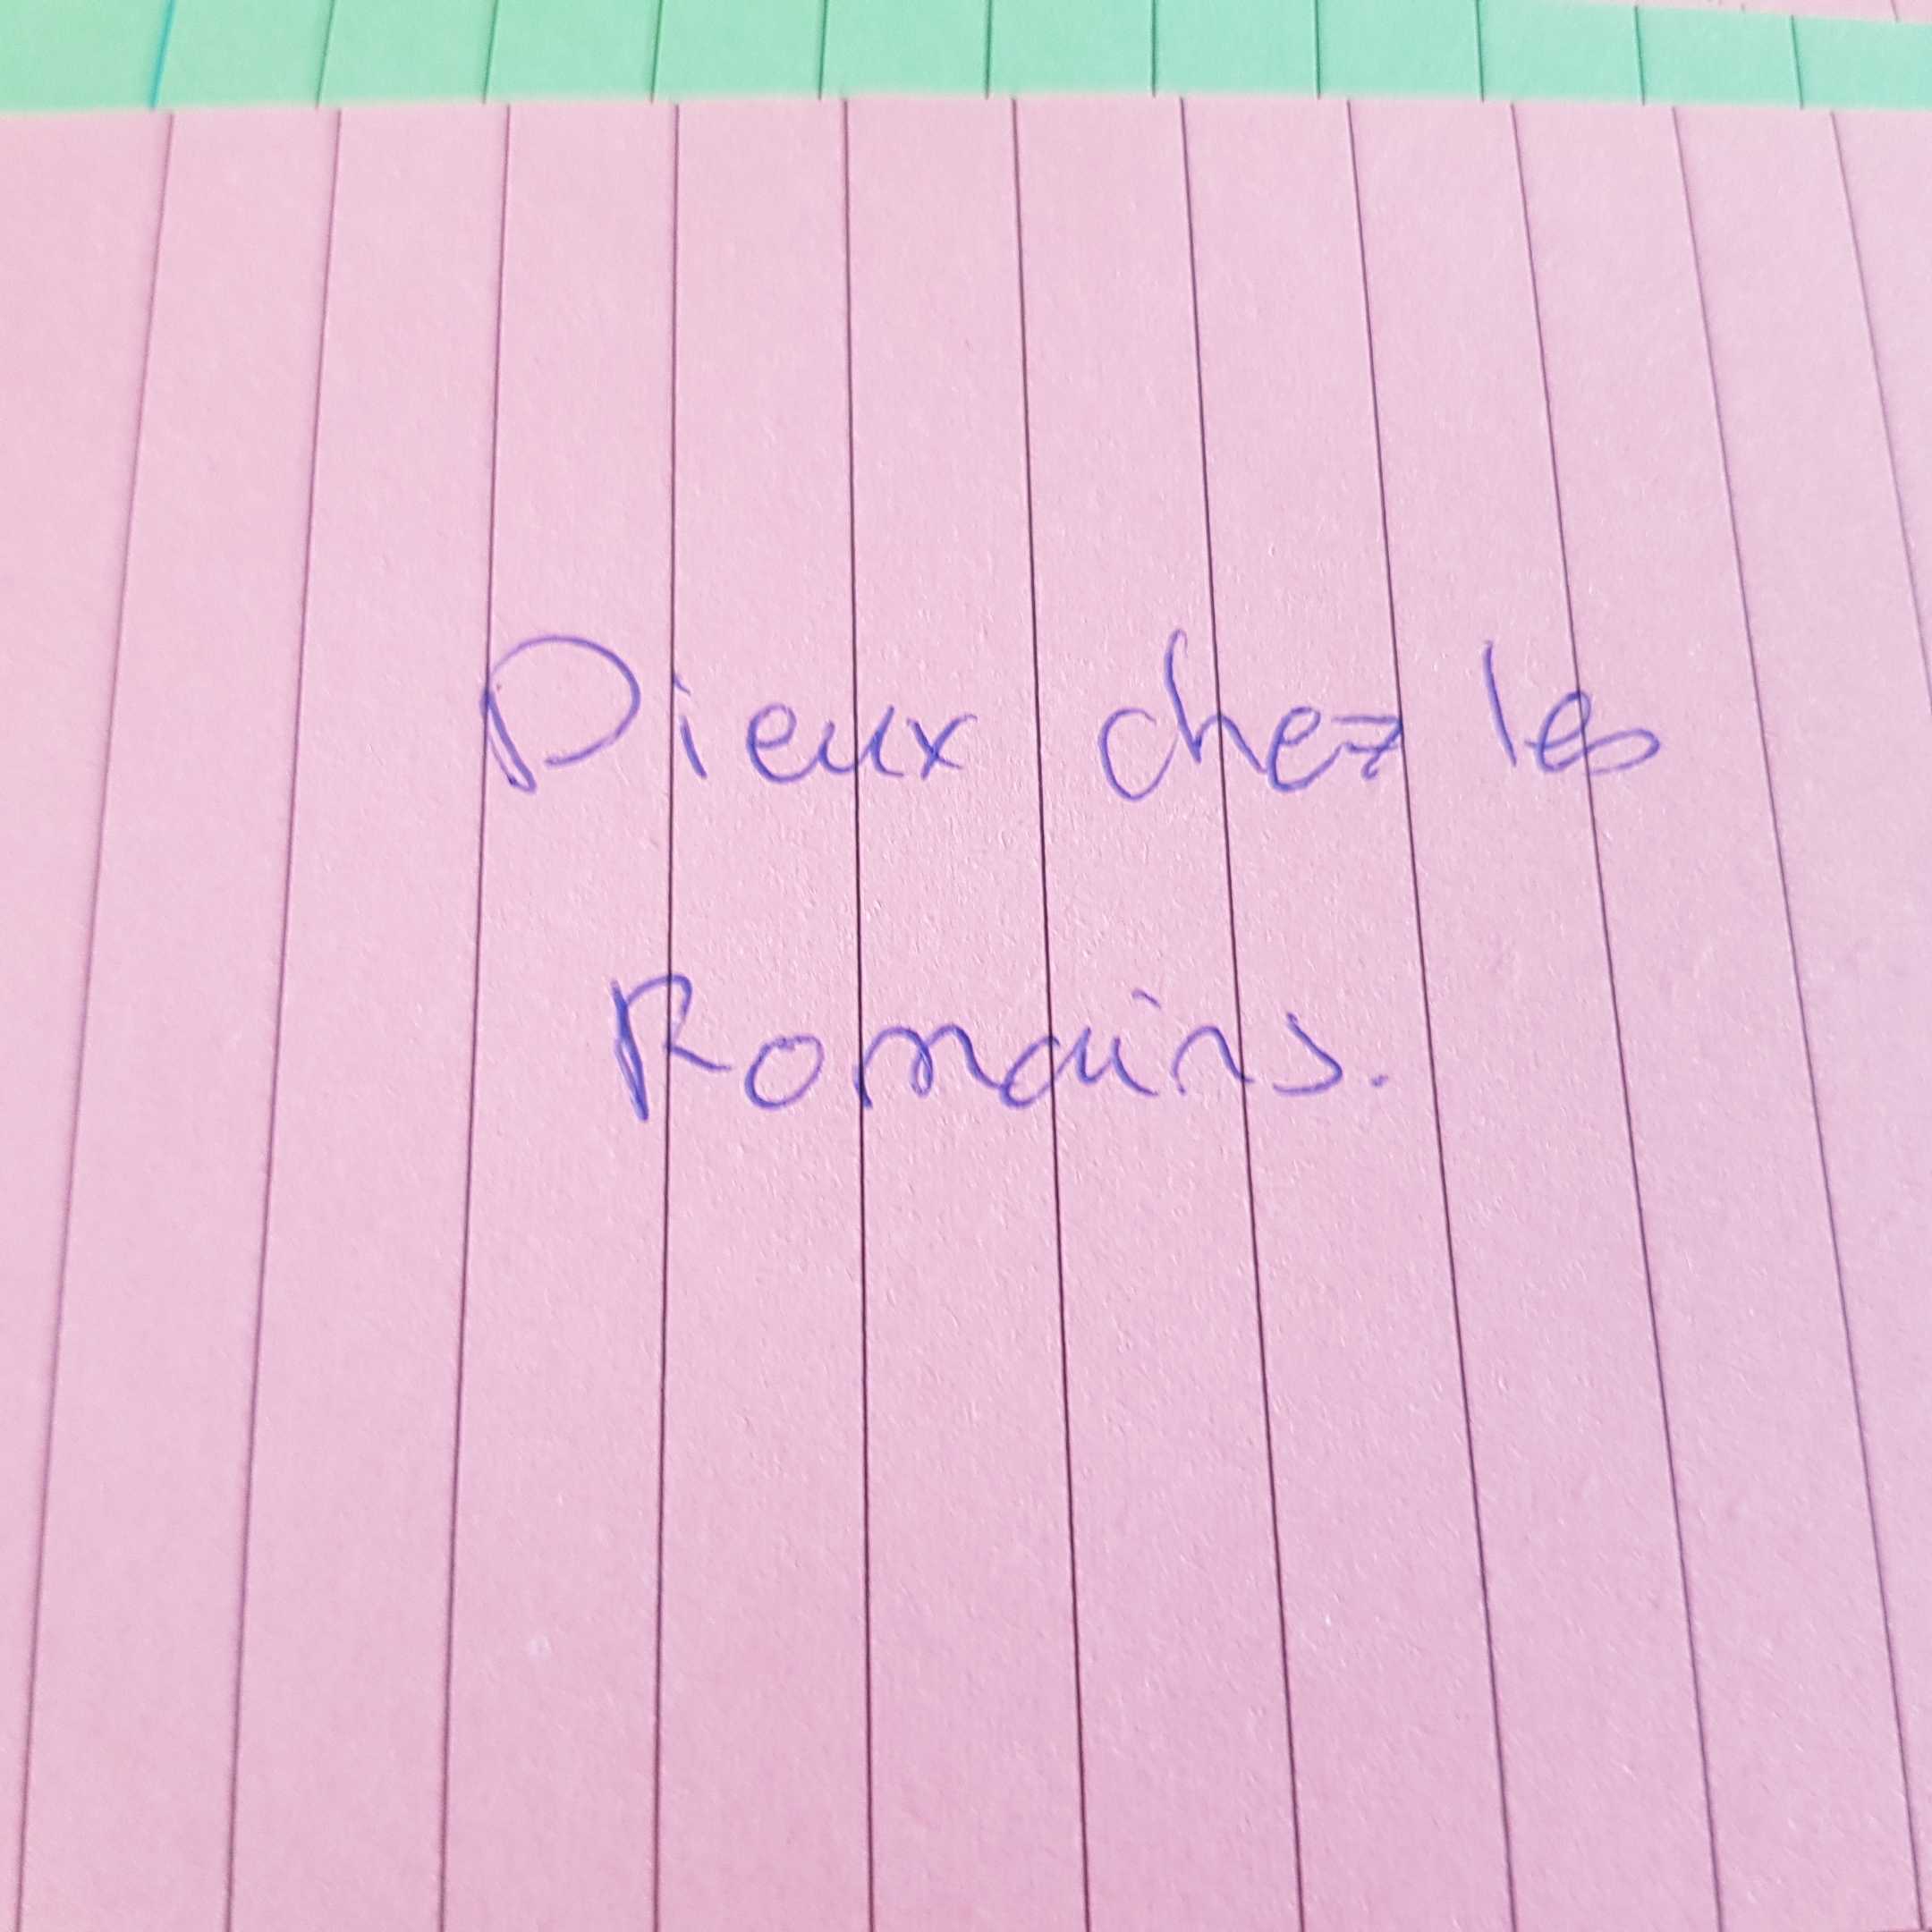 Dieux chez les
Romains.